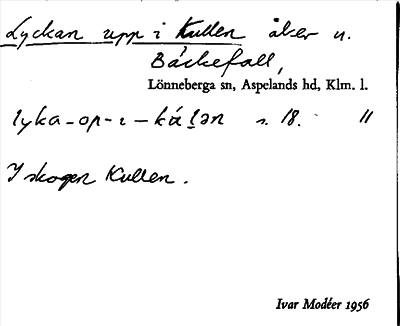 Lyckan upp i Kullen åker u.
Bäckefall,
Lönneberga sn, Aspelands hd, Klm. l.
lyka-op-ı-káḷən s. 18. "
I skogen Kullen.
Ivar Modéer 1956